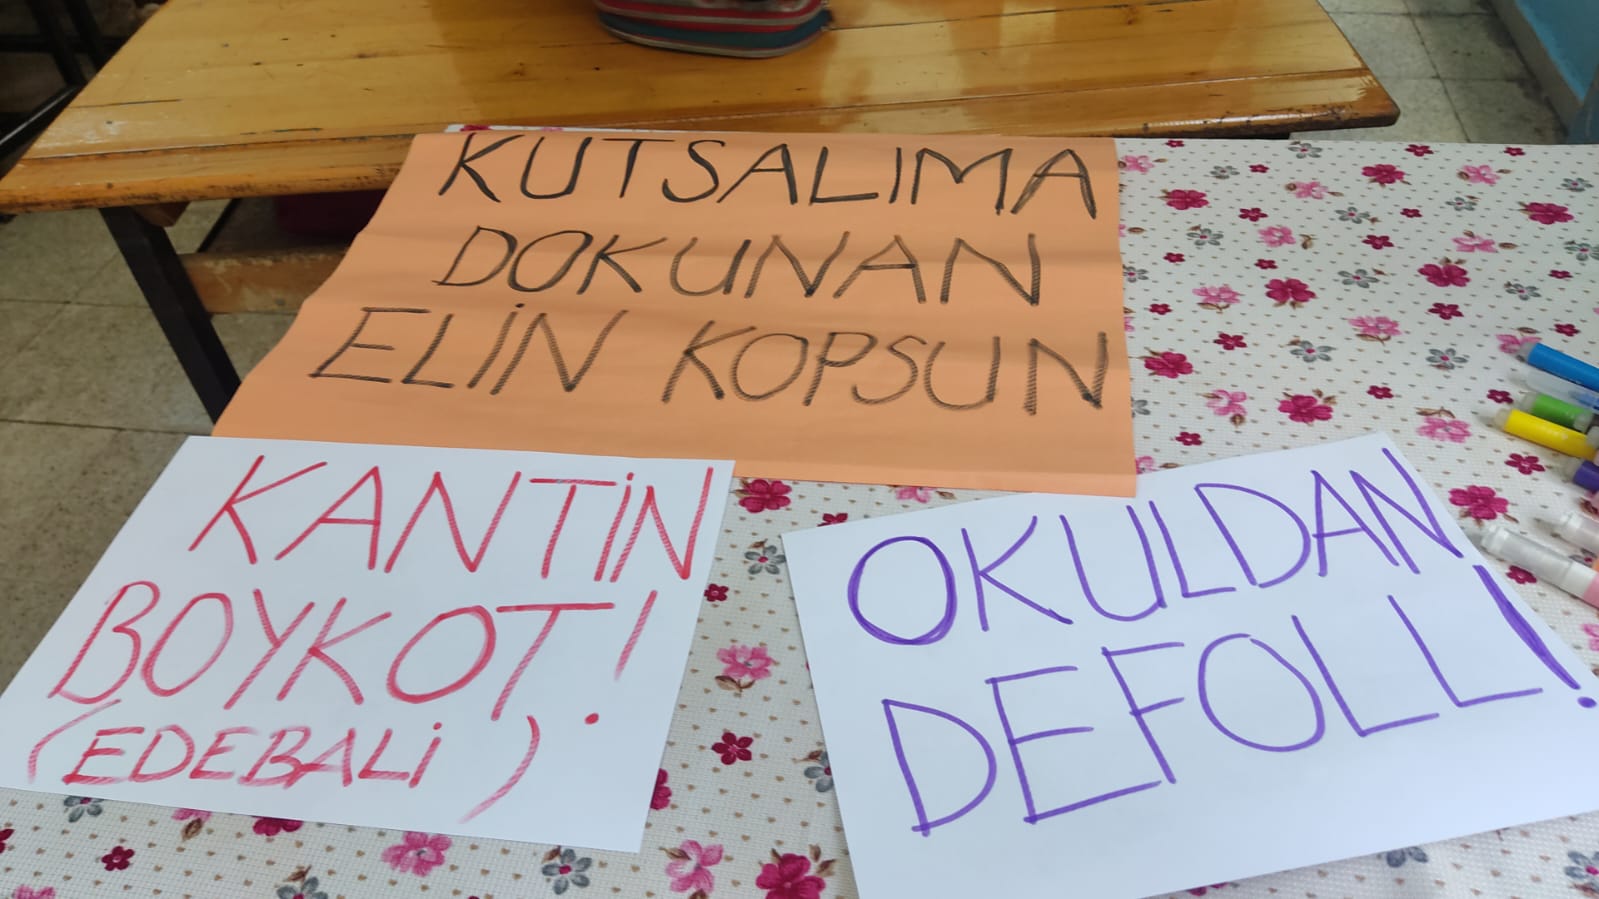 KUTSALIMA
DOKUNAN
ELİN KOPSUN
KANTİN
BOYKOT!
(EDEBALİ)
OKULDAN
DEFOLL!